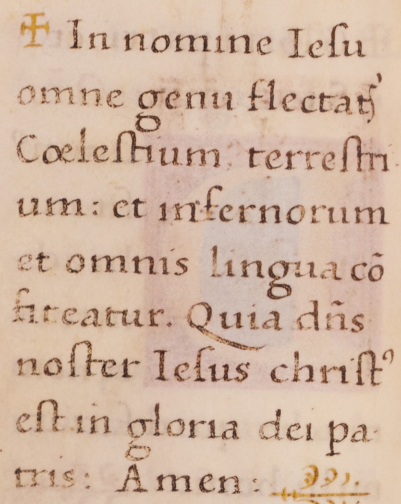 ✠ In nomine Ieſu
omne genu flectatꝭ
Cœleſtium, terreſtri
um: et infernorum
et omnis lingua cõ
fiteatur. Quia dñs
noſter Ieſus chriſtꝰ
eſt in gloria dei pa
tris: Amen: